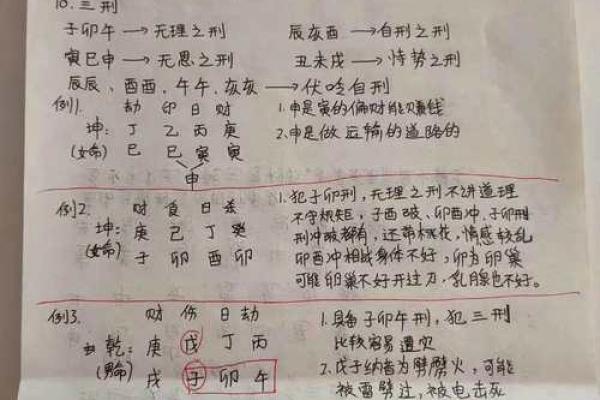 10. 三刑
子卯午 → 无理之刑 辰亥酉 → 自刑之刑
寅巳申 → 无恩之刑 丑未戌 → 恃势之刑
辰辰、酉酉、午午、亥亥 → 伏吟自刑
例1. 劫 印 日 财
坤: 丁 乙 丙 庚
(女命) 巳 巳 寅 寅
申
1.申是寅的偏财能赚钱
2.申是做运输的道路的
例2. 财 食 日 杀
坤: 庚 己 丁 癸
(女命) 子 卯 酉 卯
1.犯子卯刑,无理之刑不讲道理
不守规矩,子酉破、卯酉冲、子卯刑
刑冲破都有,还带桃花,情感较乱
卯酉冲相战身体不好,卯为卵巢
可能卵巢不好开过刀,乳腺也不好。
例3. 财 伤 日 劫
乾: 庚 戊 丁 丙
(男命) 戌 子 卯 午
1.具备子卯午刑,犯三刑
比较容易遭灾
2.戊子纳音为劈雳火,可能
被雷劈过,被电击死